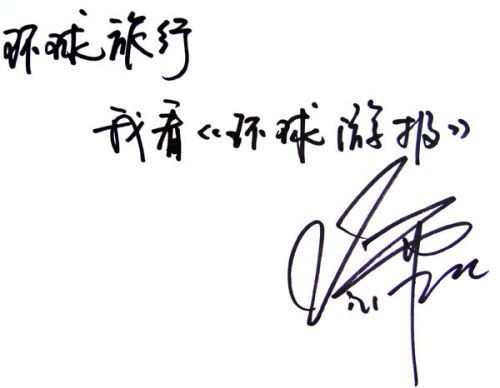 环球旅行
我看《环球游报》